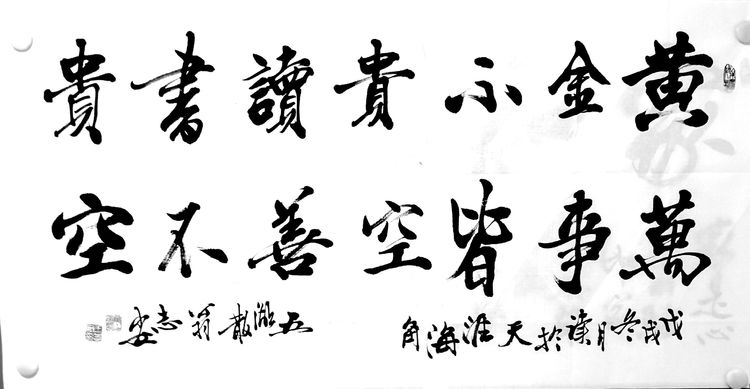 黄金不貴讀書貴
萬事皆空善不空
戊戌冬月於天涯海角 五湖散翁志